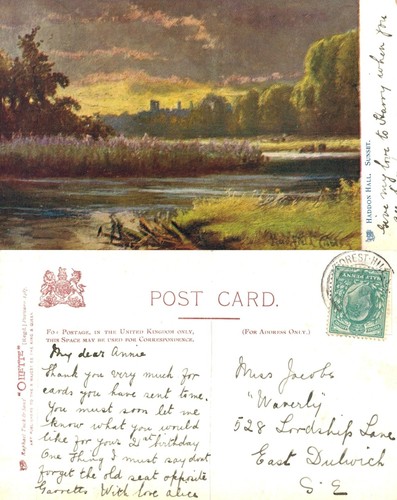 HADDON HALL. SUNSET.
Give my love to Harry when you
POST CARD.
FOR POSTAGE, IN THE UNITED KINGDOM ONLY,
THIS SPACE MAY BE USED FOR CORRESPONDENCE.
(FOR ADDRESS ONLY.)
"OILETTE"
FOREST-HILL
My dear Annie
Thank you very much for
cards you have sent to me.
You must soon let me
know what you would
like for your 21st birthday
One thing I must say dont
forget the old seat opposite
Garretts With love alice
Miss Jacobs
"Waverly"
528 Lordship Lane
East Dulwich
S.E